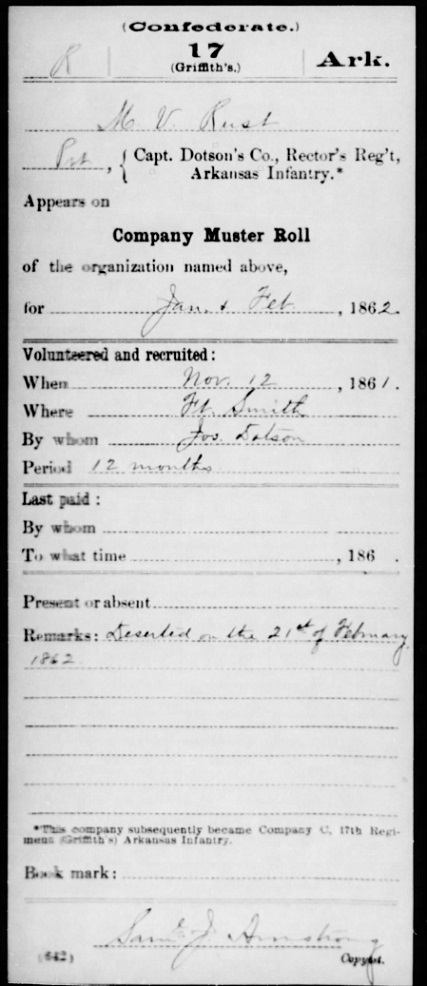 (Confederate.)
R
17
(Griffith's.)
Ark.
M. V. Rust
Pvt, { Capt. Dotson's Co., Rector's Reg't,
Arkansas Infantry.*
Appears on
Company Muster Roll
of the organization named above,
for Jan. & Feb., 1862.
Volunteered and recruited:
When Nov. 12, 1861.
Where Ft. Smith
By whom Jos. Dotson
Period 12 months
Last paid:
By whom
To what time, 186 .
Present or absent
Remarks: Deserted on the 21st of February
1862
*This company subsequently became Company C, 17th Regi-
ment (Griffith's) Arkansas Infantry.
Book mark:
Saml J. Armstrong
(642)
Copyist.